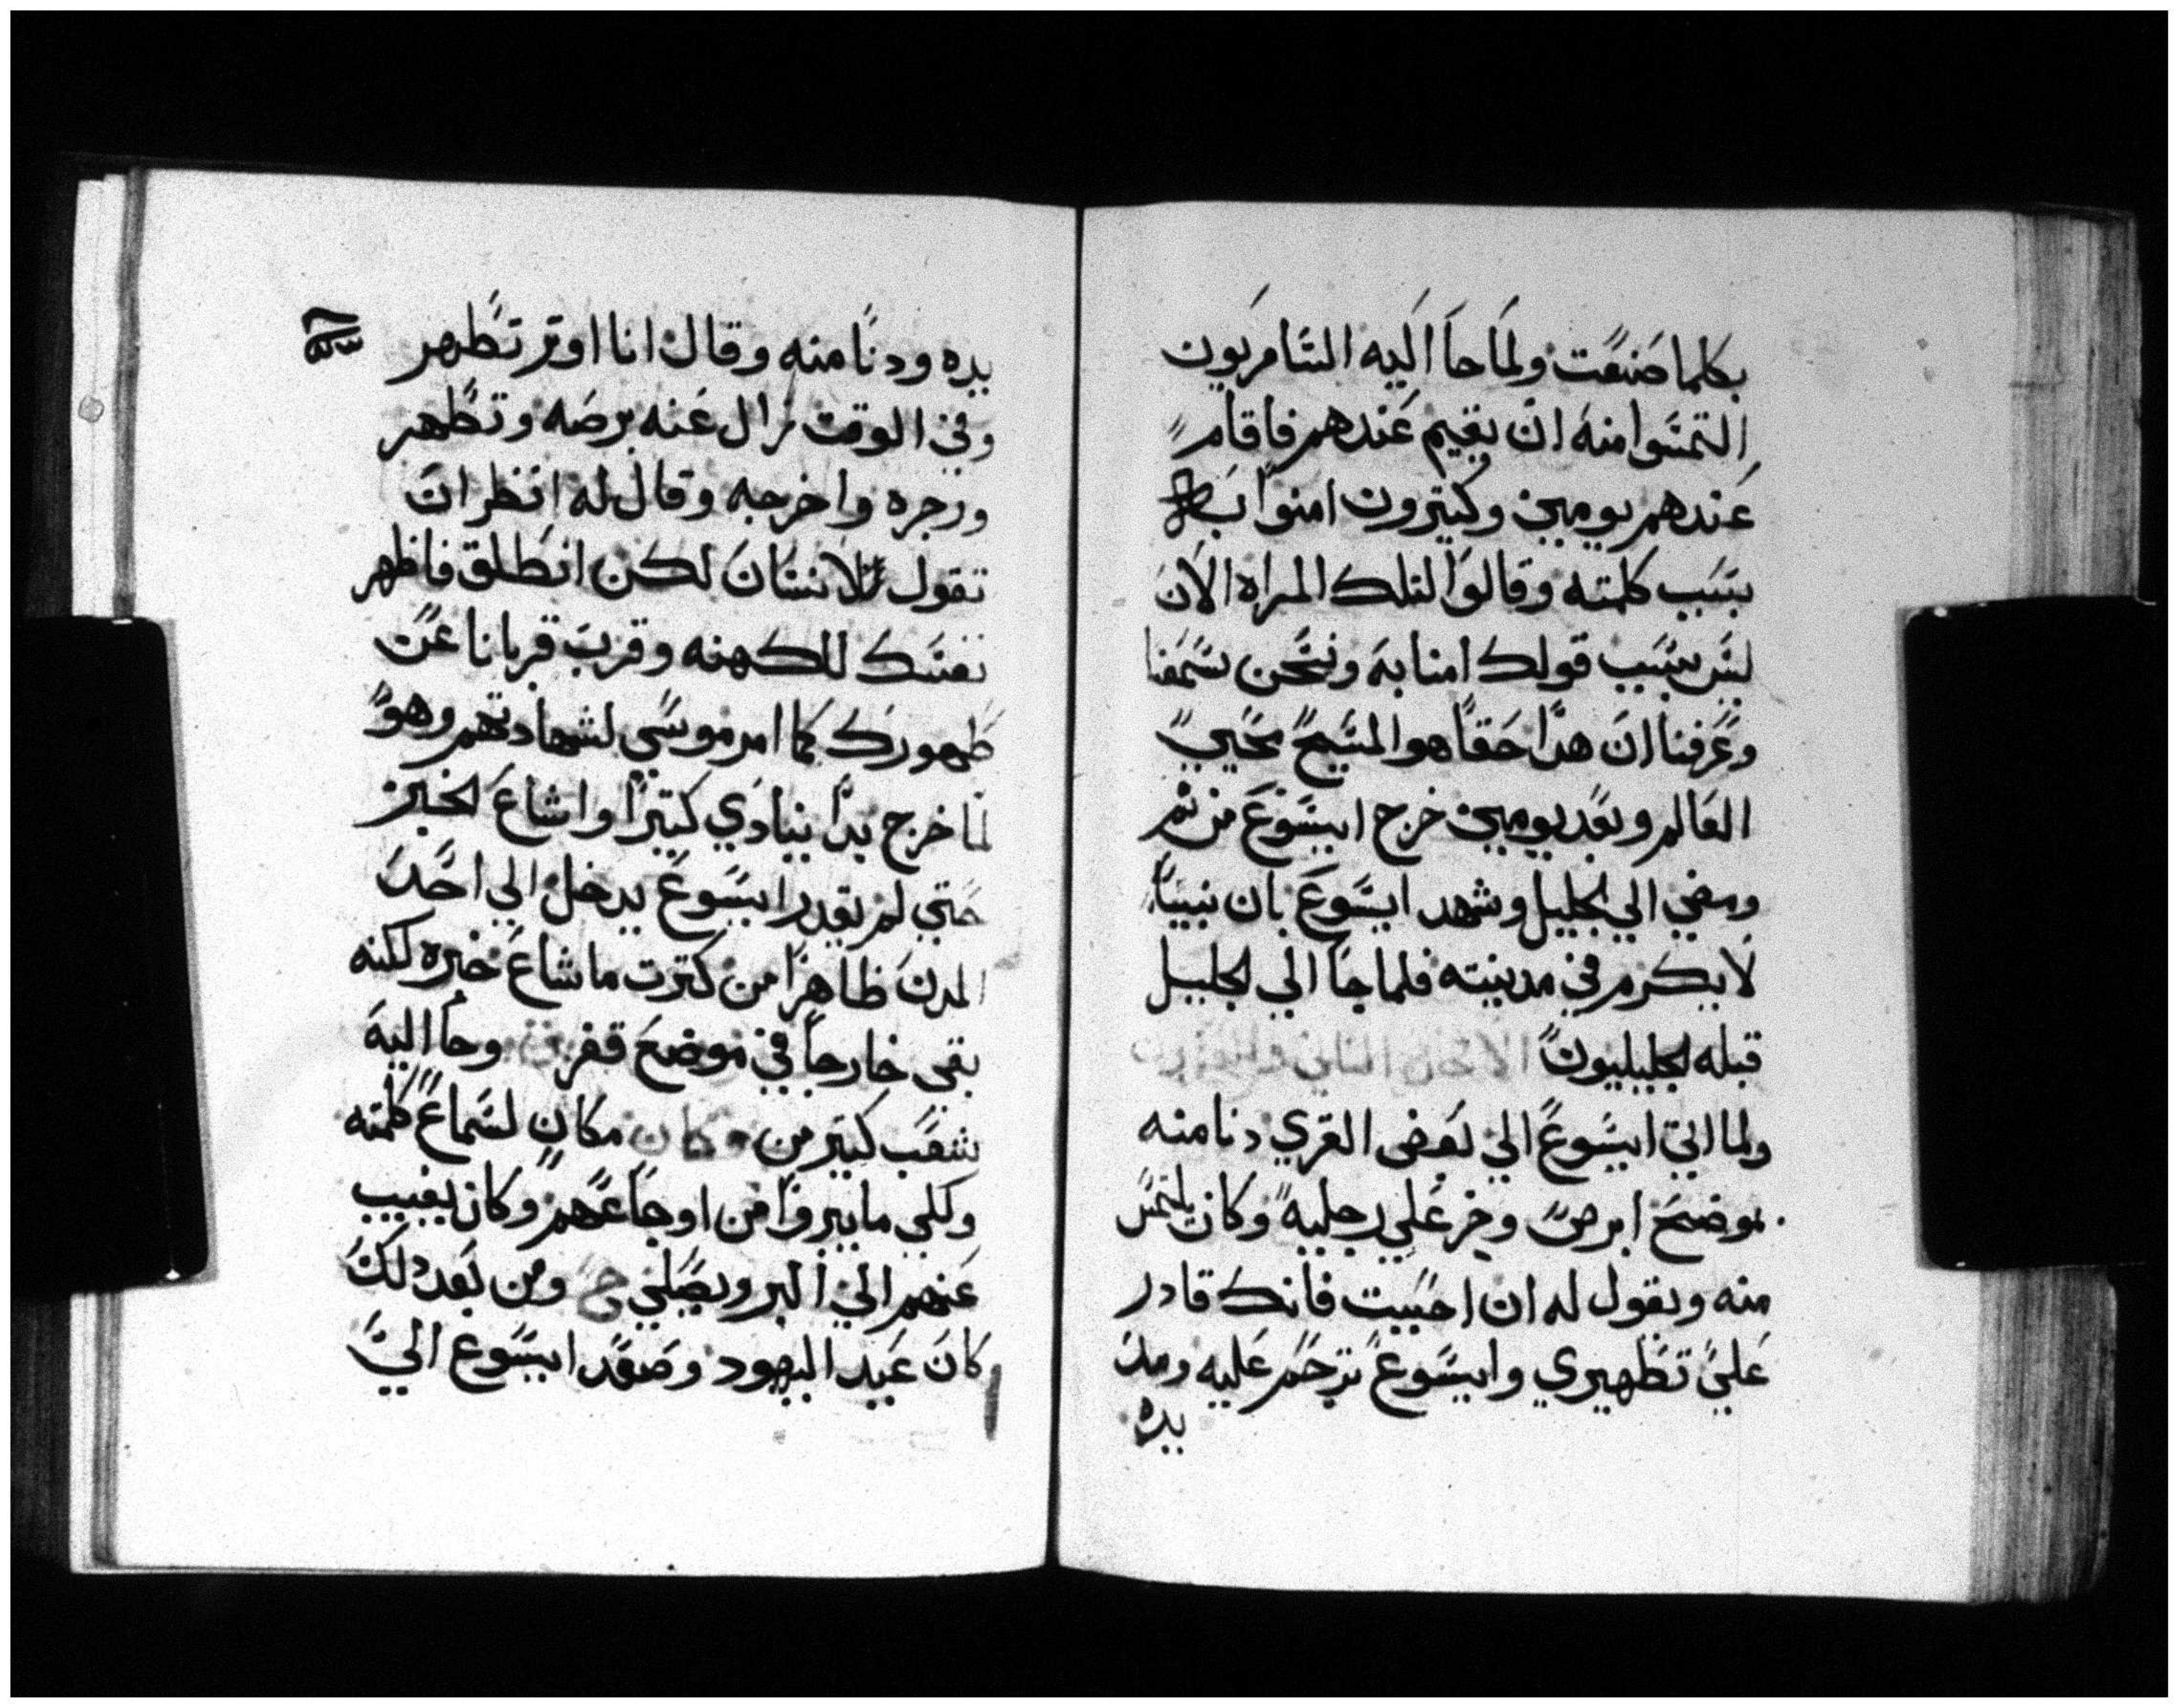 بكلما صنعت ولما جا اليه السامريون
التمسوا منه ان يقيم عندهم فاقام
عندهم يومين وكتيرون امنوا به
بسبب كلمته وقالوا لتلك المراه الان
ليس بسبب قولك امنا به ونحن سمعنا
وعرفنا ان هدا حقا هو المسيح محيي
العالم وبعد يومين خرج ايسوع من تم
ومضي الي الجليل وشهد ايسوع بان نبيا
لا يكرم في مدينته فلما جا الي الجليل
قبله الجليليون الاصحاح الثاني والعشرون
ولما اتي ايسوع الي بعض القري دنا منه
موضع ابرص وخر علي رجليه وكان يلتمس
منه ويقول له ان احببت فانك قادر
علي تطهيري وايسوع ترحم عليه ومد
يده
يده ودنا منه وقال انا اوتر تطهر
وفي الوقت زال عنه برصه وتطهر
وزجره واخرجه وقال له انظر ان
تقول لانسان لكن انطلق فاظهر
نفسك للكهنه وقرب قربانا عن
طهورك كما امر موسي لشهادتهم وهو
لما خرج بدا ينادي كتيرا واشاع الخبر
حتي لم يقدر ايسوع يدخل الي احد
المدن ظاهرا من كترت ما شاع خبره لكنه
بقي خارجا في موضع قفر وجا اليه
شعب كتير من مكان مكان لسماع كلمته
ولكي ما يبروا من اوجاعهم وكان يغيب
عنهم الي البر ويصلي ح ومن بعد دلك
كان عيد اليهود وصعد ايسوع الي